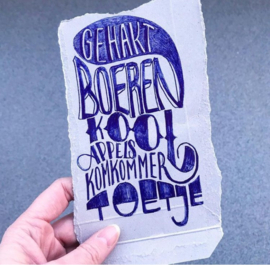 GEHAKT
BOEREN
KOOL
APPELS
KOMKOMMER
TOETJE